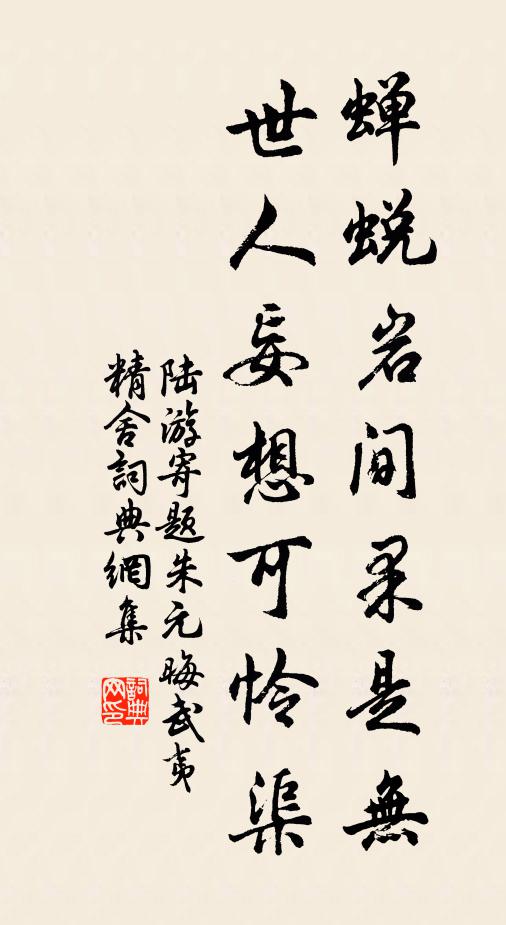 蝉蜕岩间果是無
世人妄想可怜渠
陆游寄题朱元晦武夷
精舍詞典網集
詞典
网印